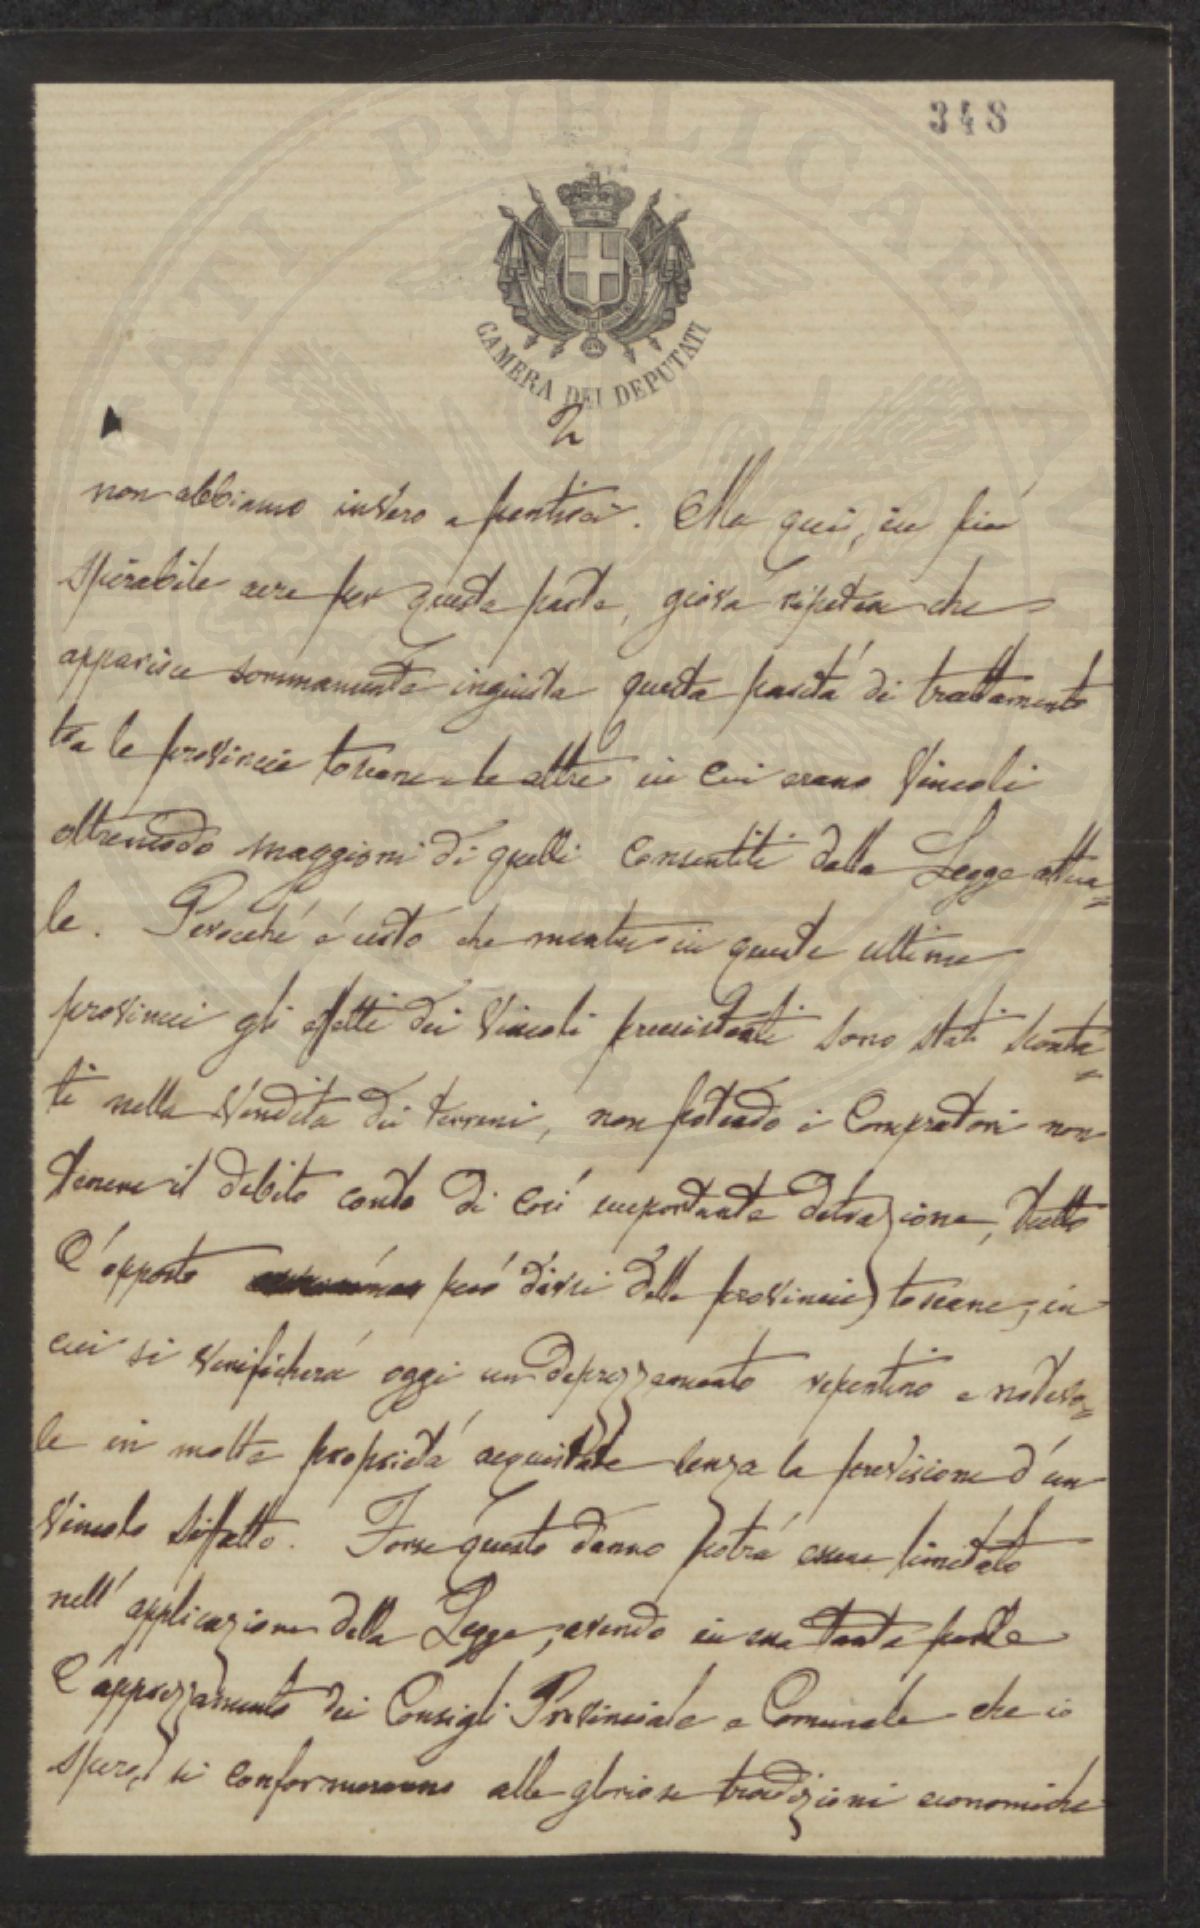 348
CAMERA DEI DEPUTATI
2
non abbiamo invero a pentirci. Ma qui, in più
spirabile aere per questa parte, giova ripetere che
apparisce sommamente ingiusta questa parità di trattamento
tra le provincie toscane e le altre in cui erano Vincoli
oltremodo maggiori di quelli consentiti dalla Legge attua=
le. Perocché è certo che mentre in queste ultime
provincie gli effetti dei Vincoli preesistenti sono stati sconta=
ti nella Vendita dei terreni, non potendo i Compratori non
tenere il debito conto di così importante detrazione, tutto
l'opposto può dirsi delle provincie toscane, in
cui si verificherà oggi un deprezzamento repentino e notevo=
le in molte proprietà acquistate senza la previsione d'un
Vincolo siffatto. Forse questo danno potrà essere limitato
nell'applicazione della Legge, avendo in essa tanta parte
l'apprezzamento dei Consigli Provinciale e Comunale che io
spero, si conformeranno alle gloriose tradizioni economiche
PUBLICAE